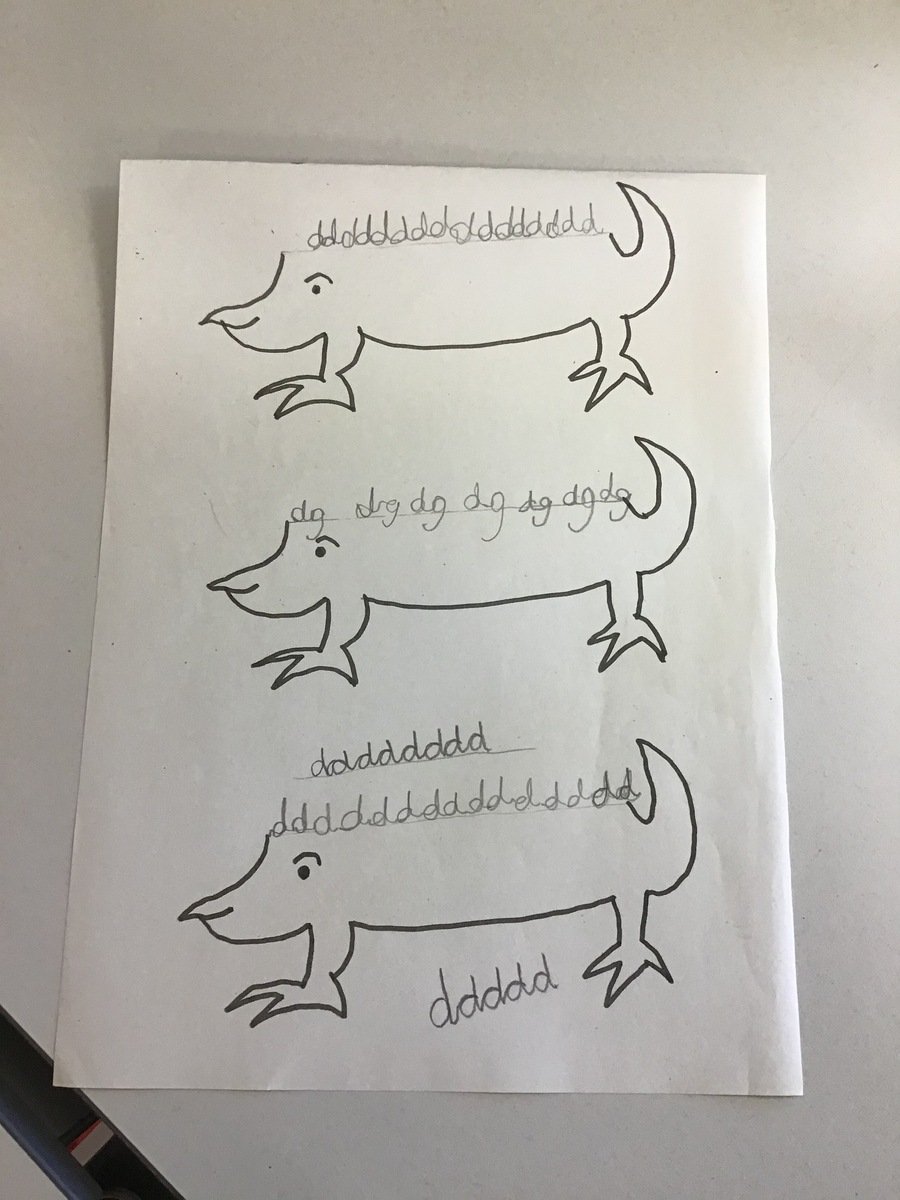 ddddddddddddddddd
dg dg dg dg dg dg dg
dddddddd
dddddddddddddddd
ddddd